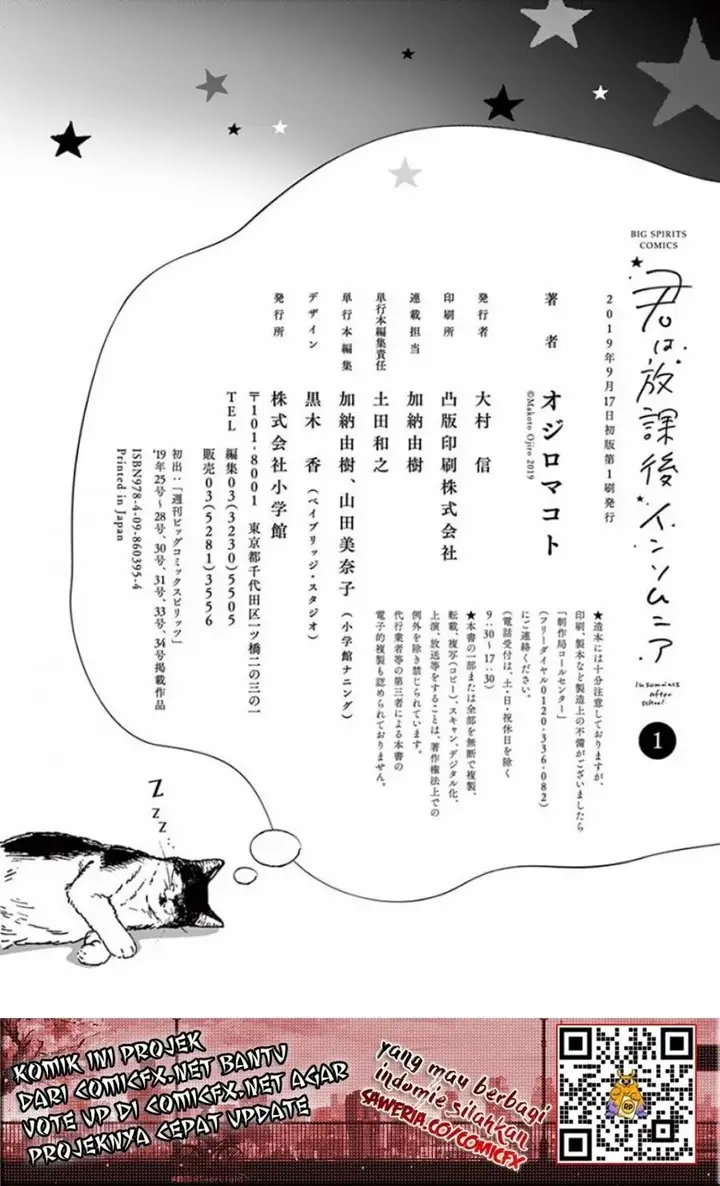 BIG SPIRITS
COMICS
君は放課後インソムニア
Insomniacs
after
school
1
2019年9月17日初版第1刷発行
著者
オジロマコト
©Makoto Ojiro 2019
発行者
大村 信
印刷所
凸版印刷株式会社
連載担当
加納由樹
単行本編集責任
土田和之
単行本編集
加納由樹、山田美奈子(小学館ナニング)
デザイン
黒木 香(ベイブリッジ・スタジオ)
発行所
株式会社小学館
〒101-8001 東京都千代田区一ツ橋二の三の一
TEL 編集03(3230)5505
販売03(5281)3556
初出:「週刊ビッグコミックスピリッツ」
'19年25号〜28号、30号、31号、33号、34号掲載作品
ISBN978-4-09-860395-4
Printed in Japan
★造本には十分注意しておりますが、
印刷、製本など製造上の不備がございましたら
「制作局コールセンター」
(フリーダイヤル0120-336-082)
にご連絡ください。
(電話受付は、土・日・祝休日を除く
9:30〜17:30)
★本書の一部または全部を無断で複製、
転載、複写(コピー)、スキャン、デジタル化、
上演、放送等をすることは、著作権法上での
例外を除き禁じられています。
代行業者等の第三者による本書の
電子的複製も認められておりません。
Z
Z Z
KOMIK INI PROJEK
DARI COMICFX.NET BANTU
VOTE UP DI COMICFX.NET AGAR
PROJEKNYA CEPAT UPDATE
yang mau berbagi
indomie silahkan
SAWERIA.CO/COMICFX